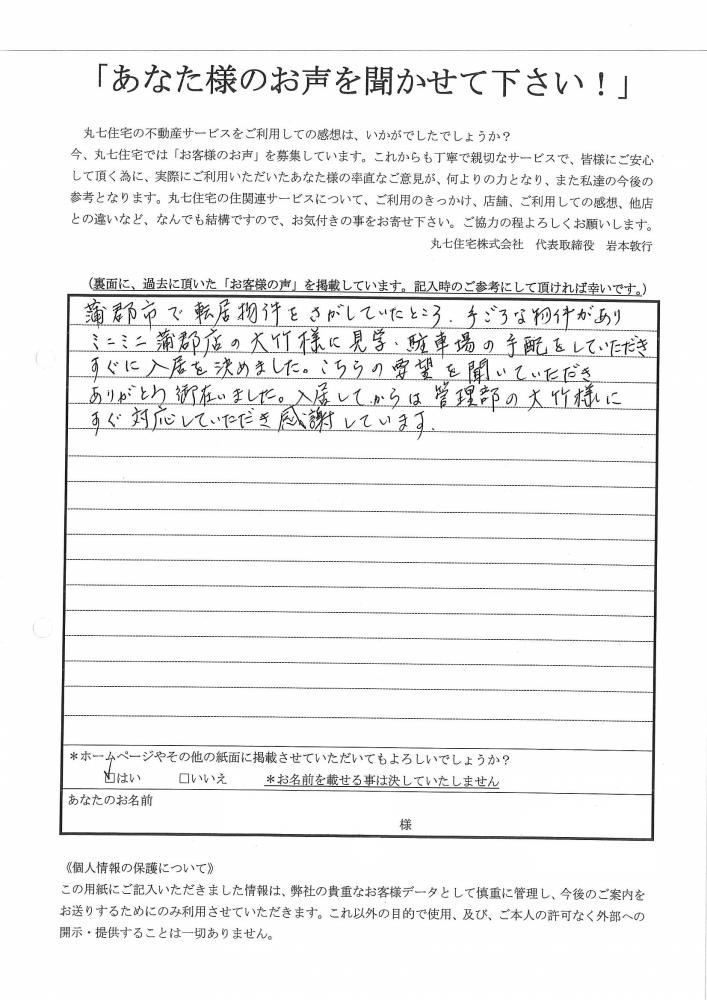 「あなた様のお声を聞かせて下さい！」
丸七住宅の不動産サービスをご利用しての感想は、いかがでしたでしょうか？
今、丸七住宅では「お客様のお声」を募集しています。これからも丁寧で親切なサービスで、皆様にご安心
して頂く為に、実際にご利用いただいたあなた様の率直なご意見が、何よりの力となり、また私達の今後の
参考となります。丸七住宅の住関連サービスについて、ご利用のきっかけ、店舗、ご利用しての感想、他店
との違いなど、なんでも結構ですので、お気付きの事をお寄せ下さい。ご協力の程よろしくお願いします。
丸七住宅株式会社　代表取締役　岩本敦行
（裏面に、過去に頂いた「お客様の声」を掲載しています。記入時のご参考にして頂ければ幸いです。）
蒲郡市で転居物件をさがしていたところ、手ごろな物件があり
ミニミニ蒲郡店の大竹様に見学・駐車場の手配をしていただき
すぐに入居を決めました。こちらの要望を聞いていただき
ありがとう御在いました。入居してからは管理部の大竹様に
すぐ対応していただき感謝しています。
＊ホームページやその他の紙面に掲載させていただいてもよろしいでしょうか？
☑はい　□いいえ　＊お名前を載せる事は決していたしません
あなたのお名前
様
《個人情報の保護について》
この用紙にご記入いただきました情報は、弊社の貴重なお客様データとして慎重に管理し、今後のご案内を
お送りするためにのみ利用させていただきます。これ以外の目的で使用、及び、ご本人の許可なく外部への
開示・提供することは一切ありません。